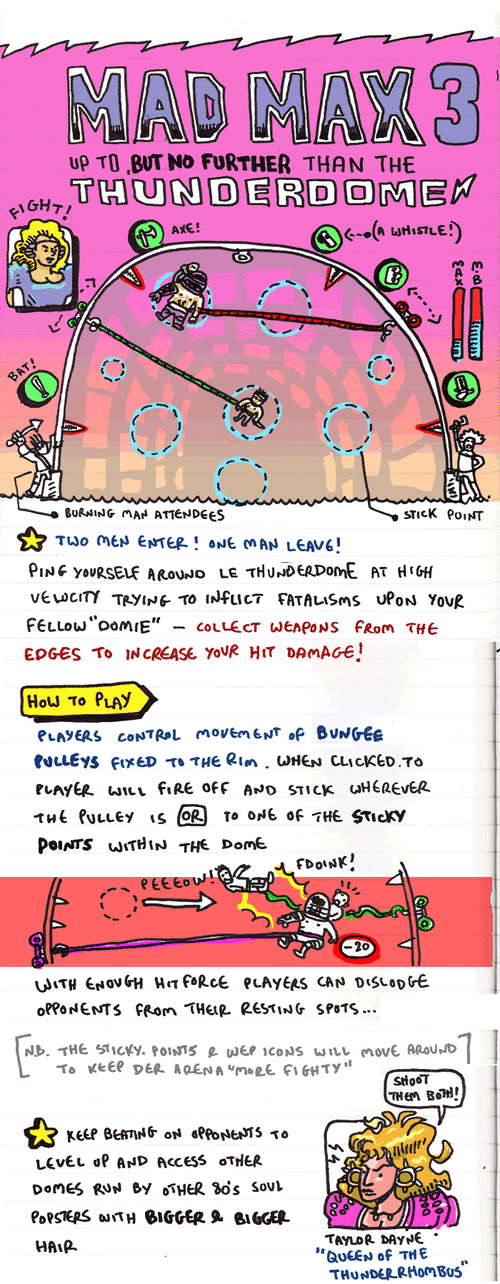 MAD MAX 3
UP TO, BUT NO FURTHER THAN THE
THUNDERDOME
FIGHT!
AXE!
(A WHISTLE!)
MAX
M.B
BAT!
BURNING MAN ATTENDEES
STICK POINT
TWO MEN ENTER! ONE MAN LEAVE!
PING YOURSELF AROUND LE THUNDERDOME AT HIGH
VELOCITY TRYING TO INFLICT FATALISMS UPON YOUR
FELLOW "DOMIE" — COLLECT WEAPONS FROM THE
EDGES TO INCREASE YOUR HIT DAMAGE!
HOW TO PLAY
PLAYERS CONTROL MOVEMENT OF BUNGEE
PULLEYS FIXED TO THE RIM. WHEN CLICKED.TO
PLAYER WILL FIRE OFF AND STICK WHEREVER
THE PULLEY IS OR TO ONE OF THE STICKY
POINTS WITHIN THE DOME
FDOINK!
PEEEOW!
-20
WITH ENOUGH HIT FORCE PLAYERS CAN DISLODGE
OPPONENTS FROM THEIR RESTING SPOTS...
[N.B. THE STICKY. POINTS & WEP ICONS WILL MOVE AROUND
TO KEEP DER ARENA "MORE FIGHTY"]
SHOOT
THEM BOTH!
KEEP BEATING ON OPPONENTS TO
LEVEL UP AND ACCESS OTHER
DOMES RUN BY OTHER 80'S SOUL
POPSTERS WITH BIGGER & BIGGER
HAIR
TAYLOR DAYNE
"QUEEN OF THE
THUNDERRHOMBUS"